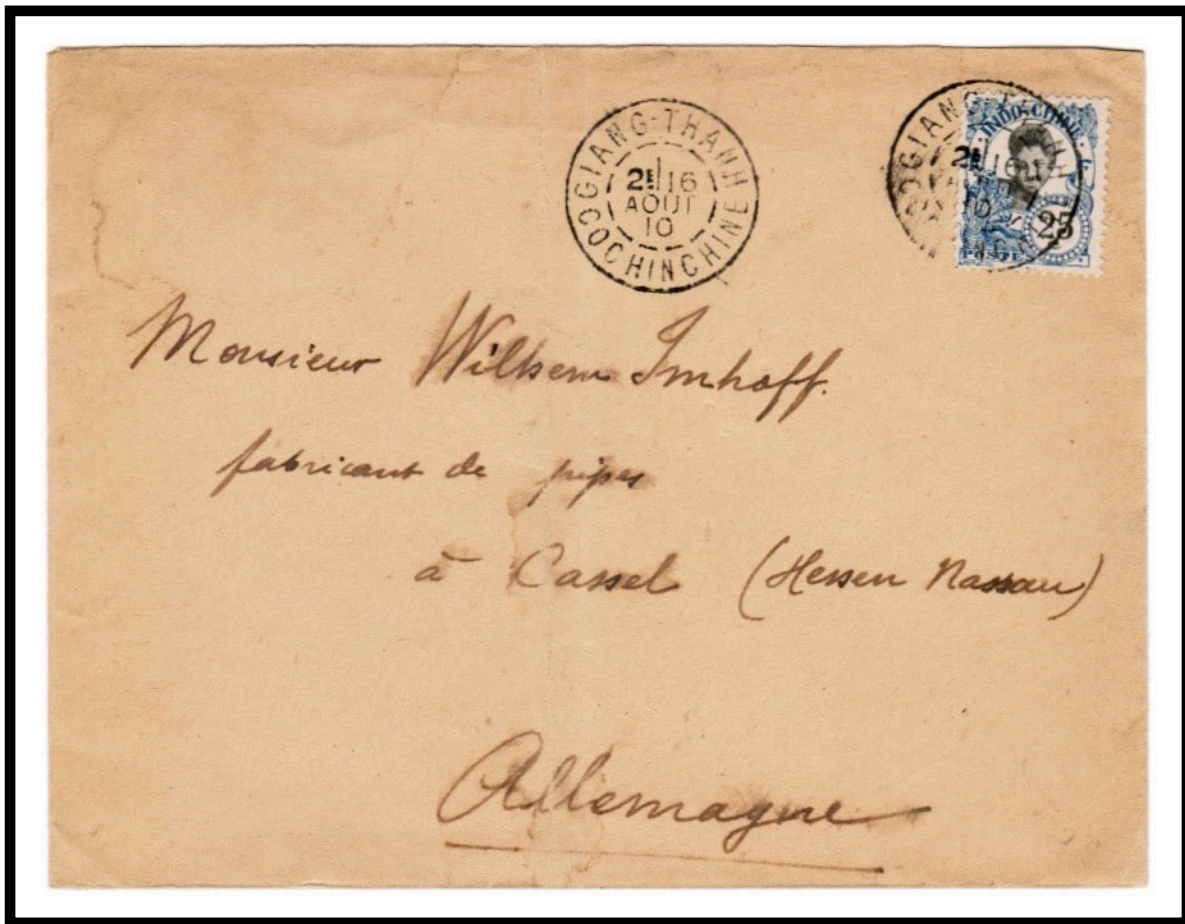 GIANG-THANH
2E 16
AOUT
10
COCHINCHINE
GIANG-T
INDO-CHINE
2E 16
10
25
POSTES
Monsieur Wilhem Imhoff.
fabricant de pipes
à Cassel (Hessen Nassau)
Allemagne